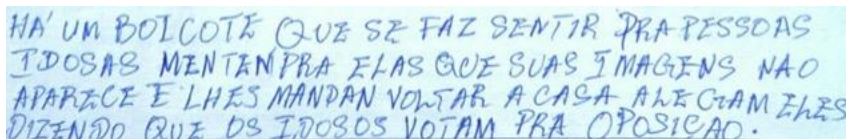 HÁ UM BOICOTE QUE SE FAZ SENTIR PRA PESSOAS
IDOSAS MENTEN PRA ELAS QUE SUAS IMAGENS NAO
APARECE E LHES MANDAN VOLTAR A CASA ALEGAM ELES
DIZENDO QUE OS IDOSOS VOTAM PRA OPOSIÇAO.